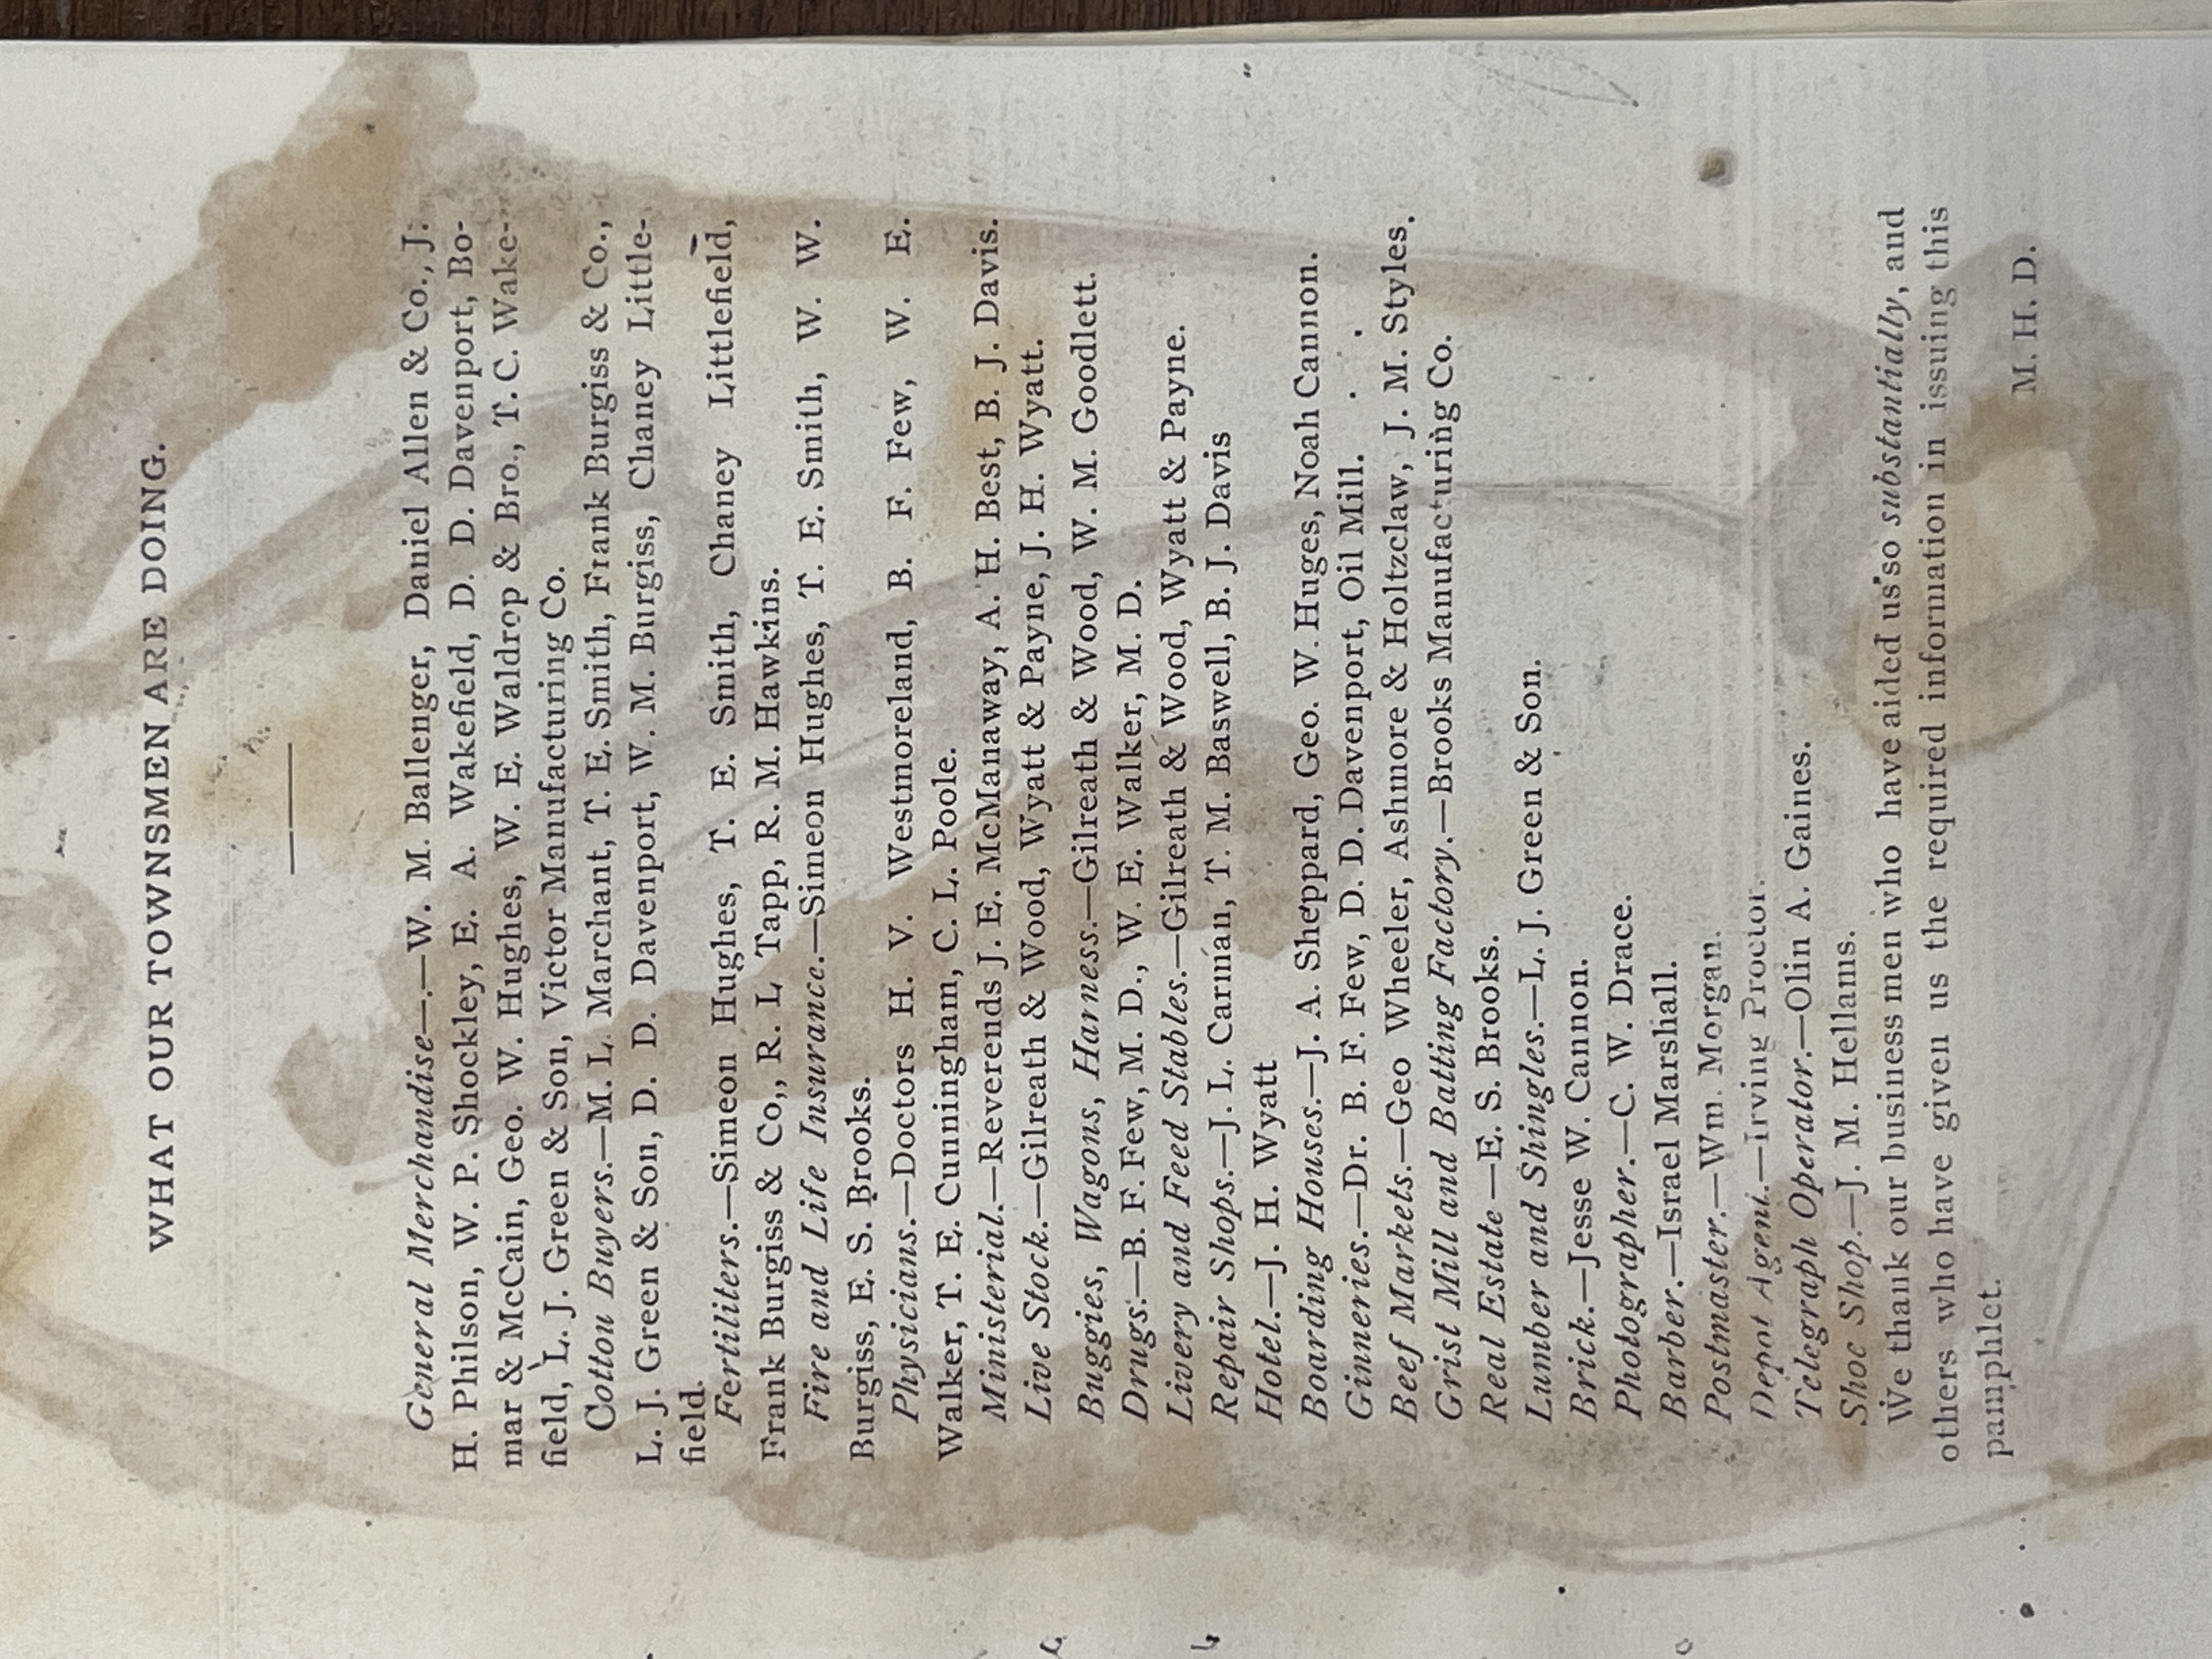 WHAT OUR TOWNSMEN ARE DOING.
General Merchandise—.—W. M. Ballenger, Daniel Allen & Co., J.
H. Philson, W. P. Shockley, E. A. Wakefield, D. D. Davenport, Bo-
mar & McCain, Geo. W. Hughes, W. E. Waldrop & Bro., T. C. Wake-
field, L. J. Green & Son, Victor Manufacturing Co.
Cottou Buyers.—M. L. Marchant, T. E. Smith, Frank Burgiss & Co.,
L. J. Green & Son, D. D. Davenport, W. M. Burgiss, Chaney Little-
field.
Fertiliters.—Simeon Hughes, T. E. Smith, Chaney Littlefield,
Frank Burgiss & Co,, R. L Tapp, R. M. Hawkins.
Fire and Life Insurance.—Simeon Hughes, T. E. Smith, W. W.
Burgiss, E. S. Brooks.
Physicians.—Doctors H. V. Westmoreland, B. F. Few, W. E.
Walker, T. E. Cunningham, C. L. Poole.
Ministerial.—Reverends J. E. McManaway, A. H. Best, B. J. Davis.
Live Stock.—Gilreath & Wood, Wyatt & Payne, J. H. Wyatt.
Buggies, Wagons, Harness.—Gilreath & Wood, W. M. Goodlett.
Drugs.—B. F. Few, M. D., W. E. Walker, M. D.
Livery and Feed Stables.—Gilreath & Wood, Wyatt & Payne.
Repair Shops.—J. L. Carman, T. M. Baswell, B. J. Davis
Hotel.—J. H. Wyatt
Boarding Houses.—J. A. Sheppard, Geo. W. Huges, Noah Cannon.
Ginneries.—Dr. B. F. Few, D. D. Davenport, Oil Mill.
Beef Markets.—Geo Wheeler, Ashmore & Holtzclaw, J. M. Styles.
Grist Mill and Batting Factory.—Brooks Manufacturing Co.
Real Estate—E. S. Brooks.
Lumber and Shingles.—L. J. Green & Son.
Brick.—Jesse W. Cannon.
Photographer.—C. W. Drace.
Barber.—Israel Marshall.
Postmaster.—Wm. Morgan.
Depot Agent.—Irving Proctor.
Telegraph Operator.—Olin A. Gaines.
Shoe Shop.—J. M. Hellams.
We thank our business men who have aided us so substantially, and
others who have given us the required information in issuing this
pamphlet.
M. H. D.